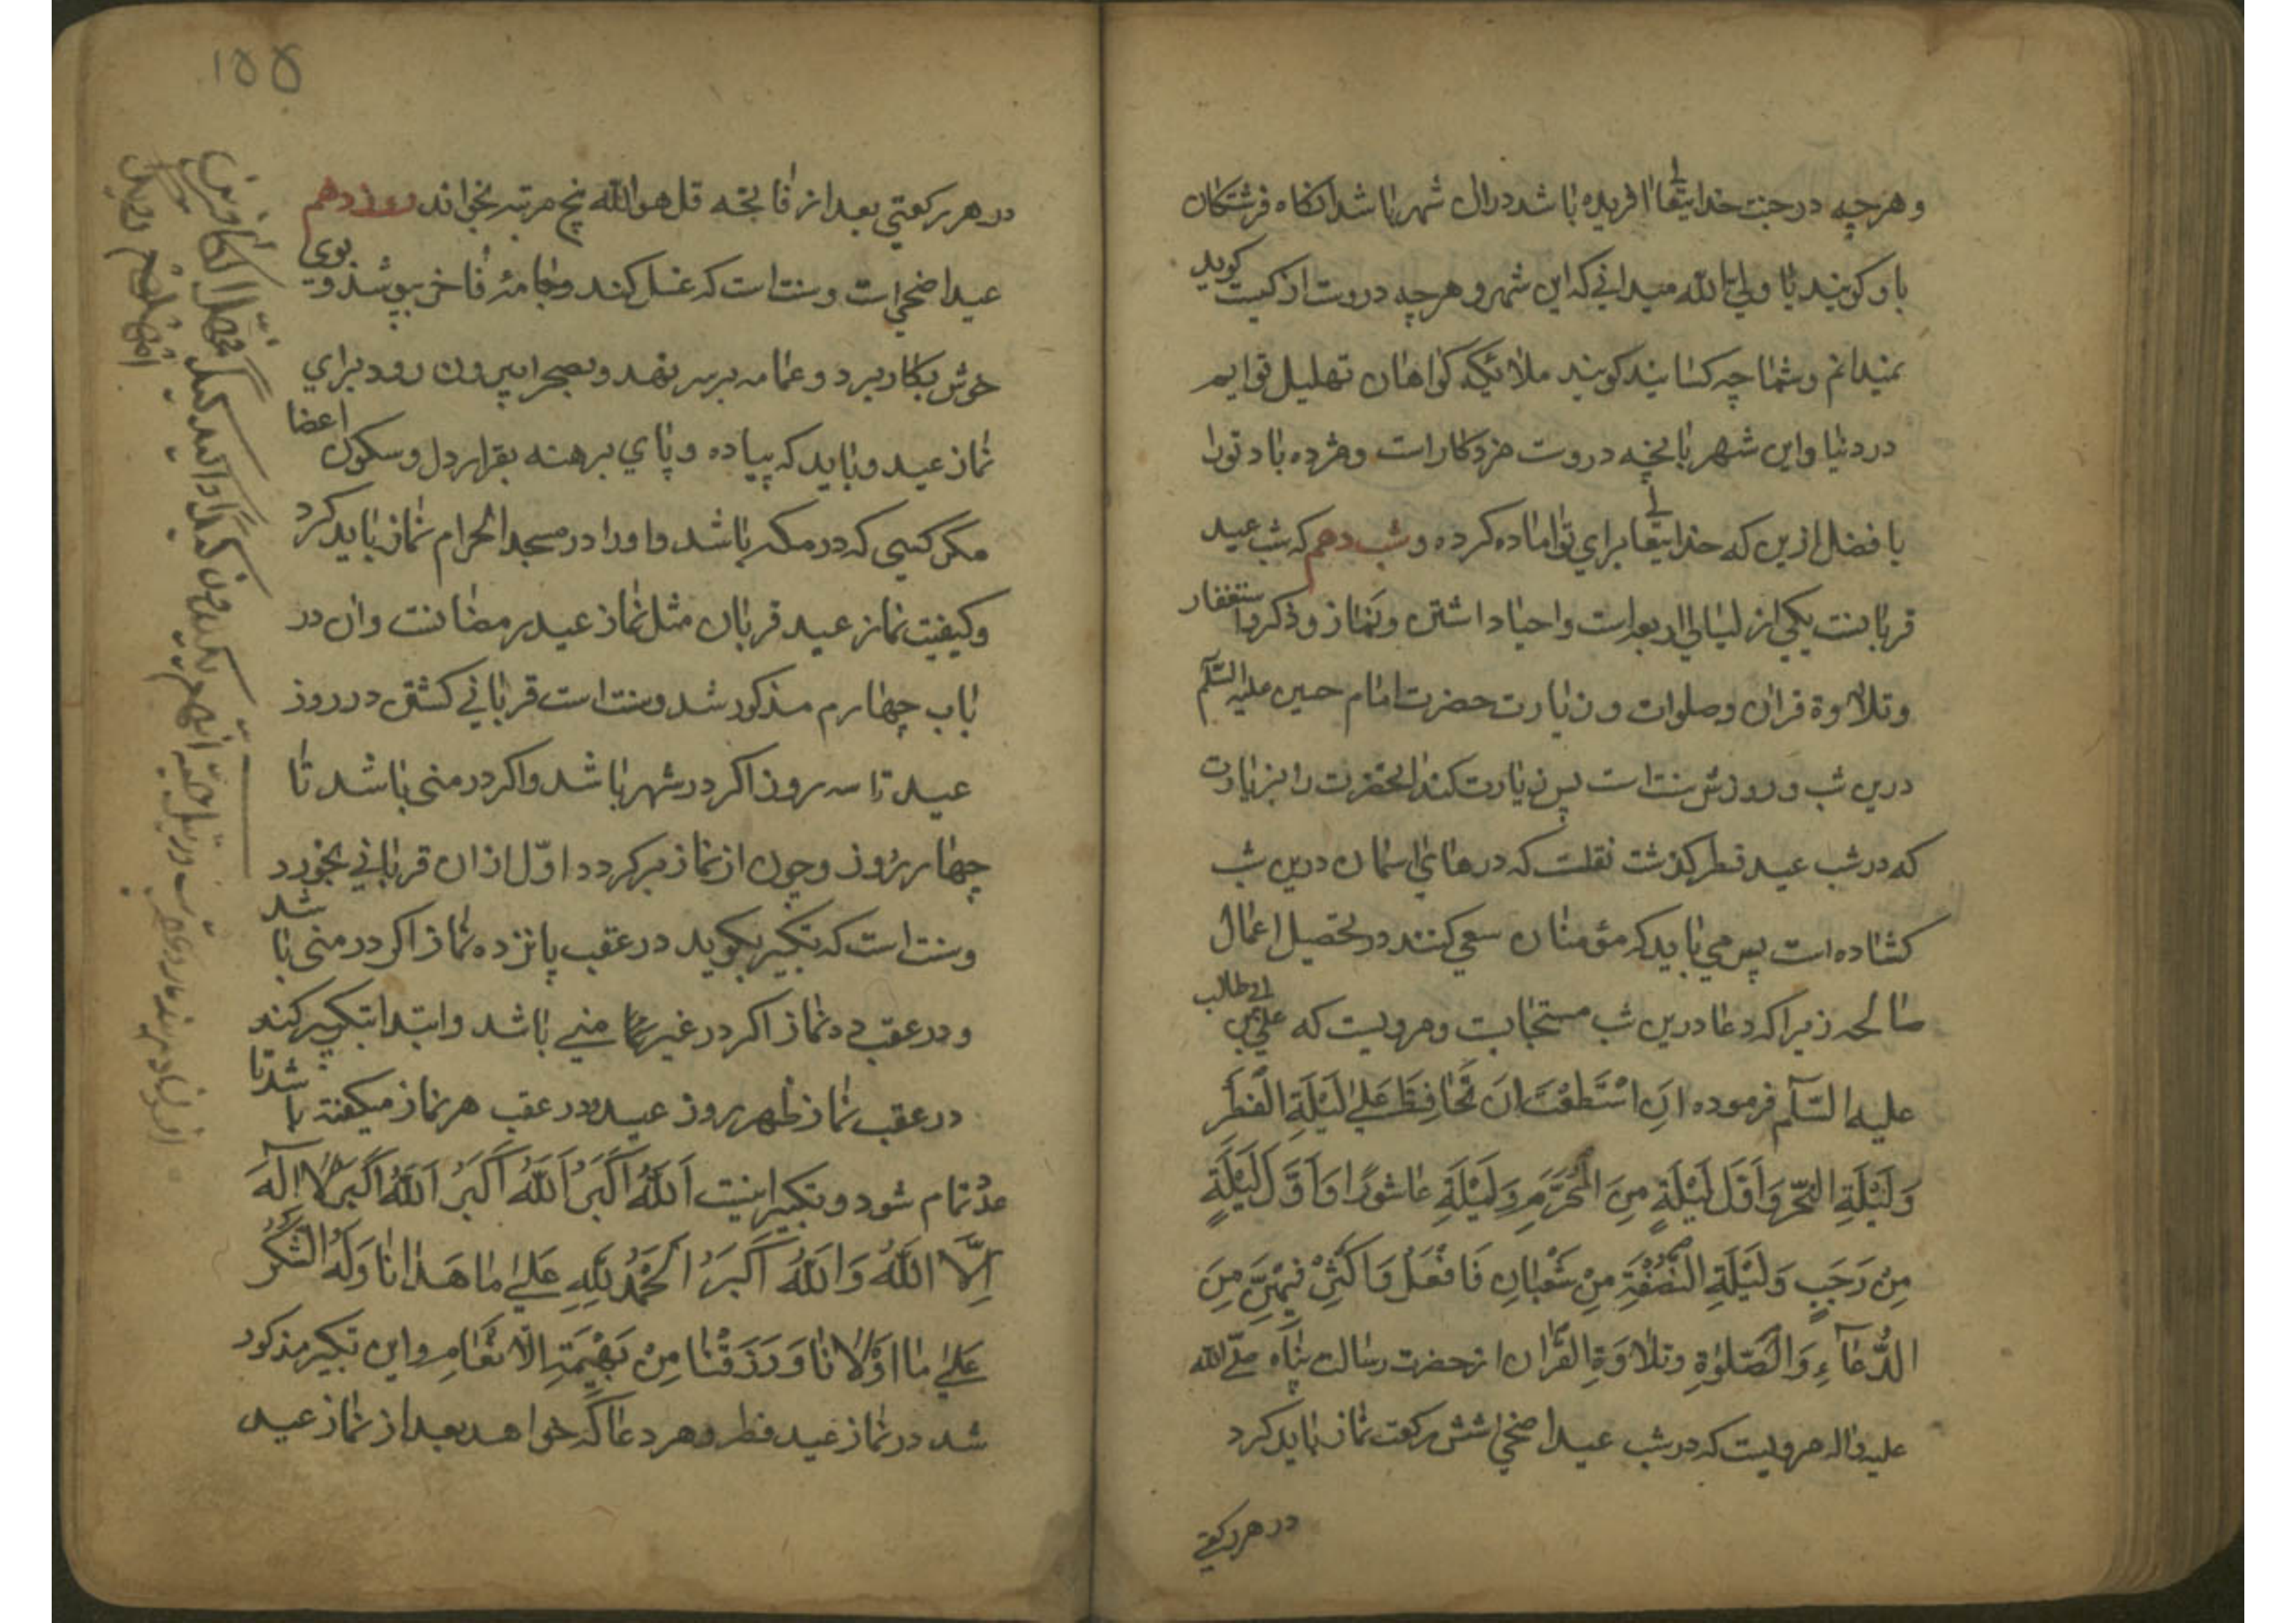 و هرچه در جنت خدایتعالی افریده باشد دران شهر باشد انکاه فرشتکان
باو کویند یا ولی الله میدانی که این شهر و هرچه دروست از کیست کوید
نمیدانم و شما چه کسانید کویند ملائیکه کواهان تهلیل توایم
در دنیا و این شهر بانچه دروست مزدکار است و مژده باد ترا
با فضل ازین که خدایتعالی برای تو اماده کرده و شب دهم که شب عید
قربانست یکی از لیالی اربعه است و احیا داشتن و نماز و ذکر و استغفار
و تلاوة قران و صلوات و زیارت حضرت امام حسین علیه السّلم
درین شب و روزش سنت است پس زیارت کند انحضرت را بزیارت
که در شب عید فطر کذشت نقلست که درهای اسمان درین شب
کشاده است پس می باید که مؤمنان سعی کنند در تحصیل اعمال
صالحه زیرا که دعا درین شب مستجابست و مرویست که علی بن ابی طالب
علیه السّلم فرموده اِنِ اسْتَطَعْتَ اَنْ تُحَافِظَ عَلی لَیْلَةِ الْفِطْرِ
وَلَیْلَةِ النَّحْرِ وَاَوَّلِ لَیْلَةٍ مِنَ الْمُحَرَّمِ وَلَیْلَةِ عَاشُورَا وَاَوَّلِ لَیْلَةٍ
مِنْ رَجَبٍ وَلَیْلَةِ النِّصْفِ مِنْ شَعْبَانِ فَافْعَلْ وَاَکْثِرْ فِیْهِنَّ مِنَ
الدُّعَآءِ وَالصَّلوٰةِ وَتِلَاوَةِ الْقُرْاٰن از حضرت رسالت پناه صلّی الله
علیه واله مرویست که در شب عید اضحی شش رکعت نماز باید کرد
در هر رکعتی
۱۵۵
در هر رکعتی بعد از فاتحه قل هو الله پنج مرتبه بخواند روز دهم
عید اضحی است و سنت است که غسل کند و جامهٔ فاخر بپوشد و بوی
خوش بکار برد و عمامه بر سر نهد و بصحرا بیرون رود برای
نماز عید و باید که پیاده و پای برهنه بقرار دل و سکون اعضا
مکر کسی که در مکه باشد و او را در مسجد الحرام نماز باید کرد
و کیفیت نماز عید قربان مثل نماز عید رمضانست و ان در
باب چهارم مذکور شد و سنت است قربانی کشتن در روز
عید تا سه روز اکر در شهر باشد و اکر در منی باشد تا
چهار روز و چون از نماز برکردد اوّل از ان قربانی بخورد
و سنت است که تکبیر بکوید در عقب پانزده نماز اکر در منی باشد
و در عقب ده نماز اکر در غیر منی باشد و ابتدا بتکبیر کند
در عقب نماز ظهر روز عید و در عقب هر نماز میکفته باشد تا
عدد تمام شود و تکبیر اینست اَللهُ اَکْبَرُ اَللهُ اَکْبَرُ اَللهُ اَکْبَرُ لَا اِلٰهَ
اِلَّا اللهُ وَاللهُ اَکْبَرُ اَلْحَمْدُ لِلّهِ عَلیٰ مَا هَدَانَا وَلَهُ الشُّکْرُ
عَلیٰ مَا اَوْلَانَا وَرَزَقْنَا مِنْ بَهِیْمَةِ الْاَنْعَامِ و این تکبیر مذکور
شد در نماز عید فطر و هر دعا که خواهد بعد از نماز عید